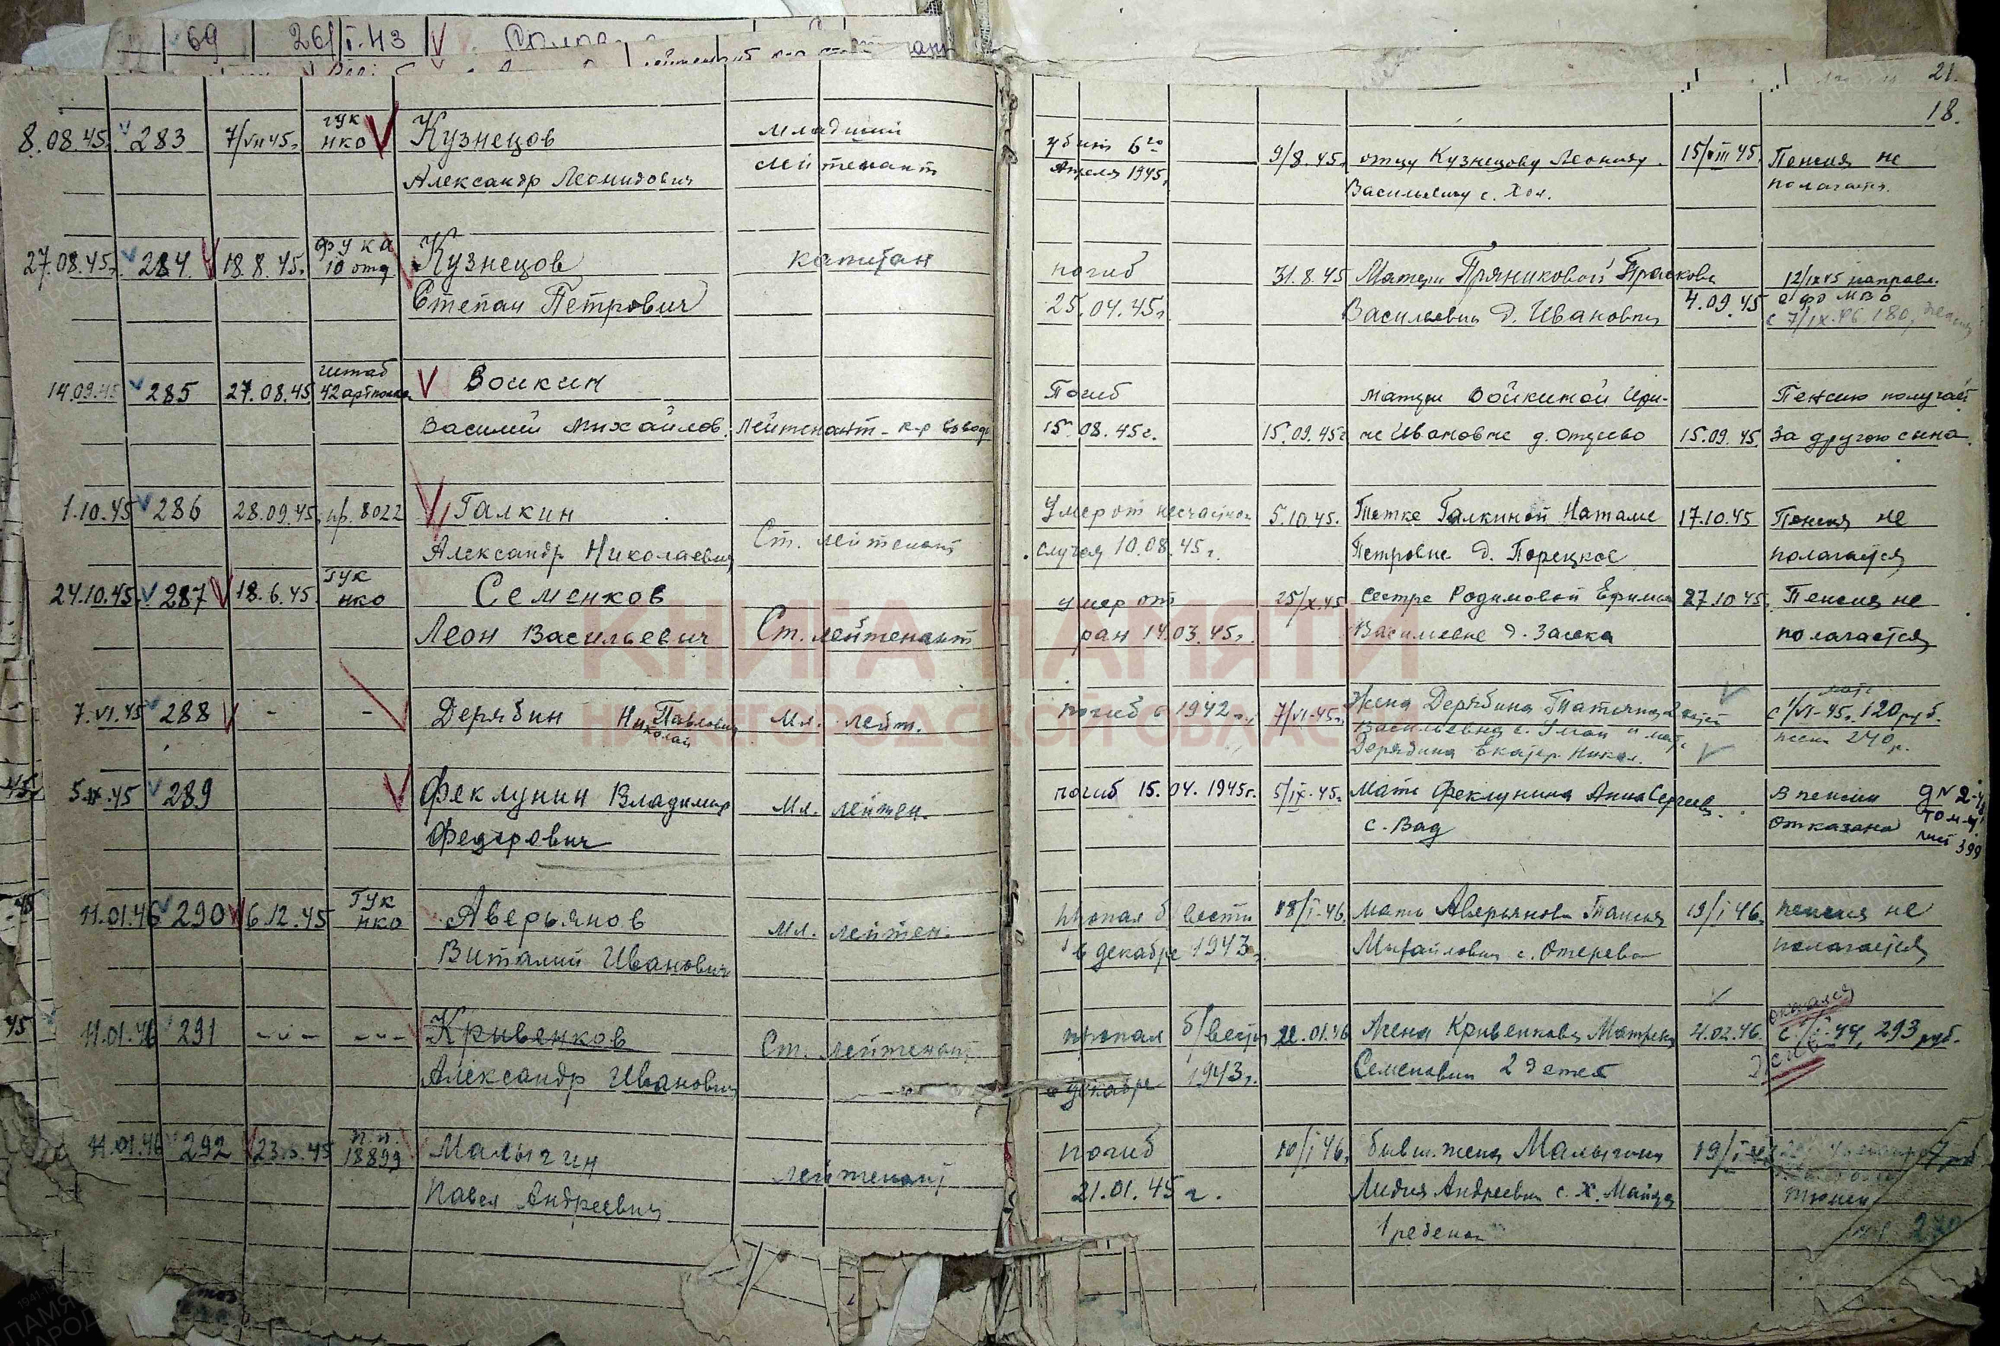 69 261/I.43
21.
18.
8.08.45. 283 7/VII 45г. ГУК НКО Кузнецов Младший убит 6го 9/8.45г. отцу Кузнецову Леониду 15/VIII 45. Пенсия не
Александр Леонидович лейтенант Апреля 1945г. Васильевичу с. полагается.
27.08.45г. 284 18.8.45г. 10 отд Кузнецов капитан погиб 31.8.45 Матери Пряниковой Прасковьи 12/IX 45 направл.
Степан Петрович 25.04.45г Васильевич д. Ивановку 4.09.45 МВО
с 7/IX.46. 180,
14.09.45 285 27.08.45 штаб 42 артполка Войкин Погиб матери Войкиной Ири- Пенсию получает
Василий Михайлов. лейтенант - к-р взвода 15.08.45г. 15.09.45г не Ивановне д. 15.09.45. за другого сына.
1.10.45 286 28.09.45. 8022 Галкин Умер от несчастного 5.10.45. Тетке Галкиной Наталье 17.10.45 Пенсия не
Александр Николаевич Ст. лейтенант случая 10.08.45г. Петровне д. Порецкое полагается
24.10.45. 287 18.6.45. ГУК НКО Семенков умер от 25/X.45 Сестре Родимовой Ефимии 27.10.45. Пенсия не
Леон Васильевич Ст. лейтенант ран 14.03.45г. Васильевне д. Засека полагается
7.VI.45 288 - - Дерябин Николай Павлович Мл. лейт. погиб в 1942г. 7/VI-45г. Жена Дерябина Татьяна 2 детей с 1/VI-45г. 120 руб.
Васильевна с. и мать 240 р.
Дерябина Екатер. Никол.
5.IX.45 289 Феклунин Владимир Мл. лейтен. погиб 15.04.1945г. 5/IX-45г. Мать Феклунина Анна Сергеев. В пенсии
Федорович с. Вад отказано
лист 399
11.01.46 290 6.12.45 ГУК НКО Аверьянов Мл. лейтен. пропал б/вести 18/I-46. мать Аверьянова Таисья 19/I 46. пенсия не
Виталий Иванович в декабре 1943г. Михайловна с. полагается
11.01.46 291 -"- -"- Кривенков Ст. лейтенант пропал б/вести 22.01.46 Жена Кривенкова Матрена 4.02.46. 293 руб.
Александр Иванович в декабре 1943г. Семеновна 2 детей
11.01.46 292 п.п. 18899 Малыгин лейтенант погиб 10/I 46. бывш. жена Малыгина 19/I
Павел Андреевич 21.01.45г. Лидия Андреевна с. Х. Майдан
1 ребенок
КНИГА ПАМЯТИ
НИЖЕГОРОДСКОЙ ОБЛАСТИ